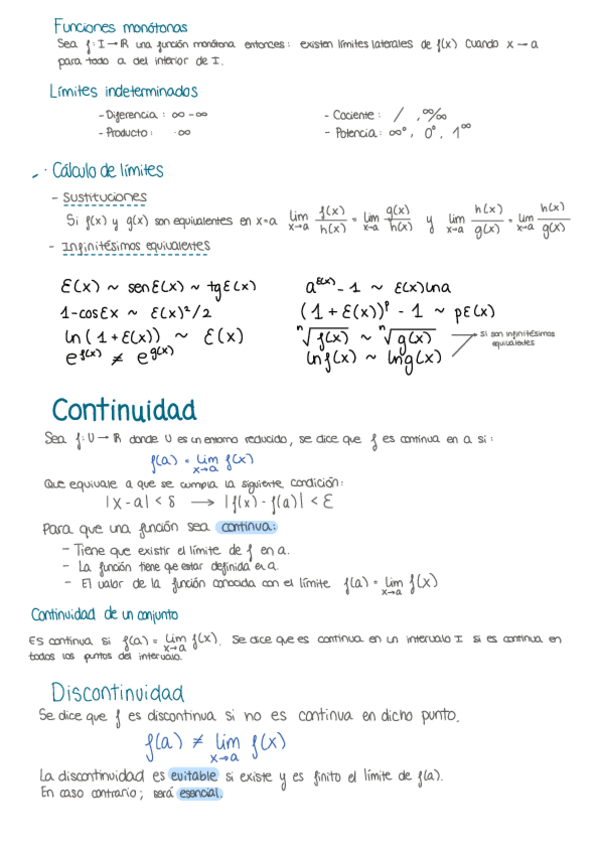 Funciones monótonas
Sea f: I → ℝ una función monótona entonces: existen límites laterales de f(x) cuando x → a
para todo a del interior de I.
Límites indeterminados
- Diferencia: ∞ - ∞
- Cociente: / , ∞/∞
- Producto: · ∞
- Potencia: ∞⁰, 0⁰, 1^∞
· Cálculo de límites
- Sustituciones
Si f(x) y g(x) son equivalentes en x=a lim x→a f(x)/h(x) = lim x→a g(x)/h(x) y lim x→a h(x)/g(x) = lim x→a h(x)/g(x)
- Infinitésimos equivalentes
Ɛ(x) ~ senƐ(x) ~ tgƐ(x)
a^Ɛ(x) - 1 ~ Ɛ(x)lna
1-cosƐx ~ Ɛ(x)²/2
(1 + Ɛ(x))^p - 1 ~ pƐ(x)
ln(1+Ɛ(x)) ~ Ɛ(x)
ⁿ√f(x) ~ ⁿ√g(x)
e^f(x) ≠ e^g(x)
lnf(x) ~ lng(x)
Si son infinitésimos
equivalentes
Continuidad
Sea f: U → ℝ donde U es un entorno reducido, se dice que f es continua en a si:
f(a) = lim x→a f(x)
Que equivale a que se cumpla la siguiente condición:
|x-a| < δ → |f(x)-f(a)| < Ɛ
Para que una función sea continua:
- Tiene que existir el límite de f en a.
- La función tiene que estar definida en a.
- El valor de la función coincida con el límite f(a) = lim x→a f(x)
Continuidad de un conjunto
Es continua si f(a) = lim x→a f(x). Se dice que es continua en un intervalo I si es continua en
todos los puntos del intervalo.
Discontinuidad
Se dice que f es discontinua si no es continua en dicho punto.
f(a) ≠ lim x→a f(x)
La discontinuidad es evitable si existe y es finito el límite de f(a).
En caso contrario; será esencial.